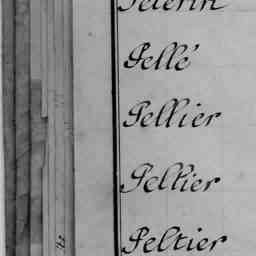 Pelerin
Pellé
Pellier
Peltier
Peltier